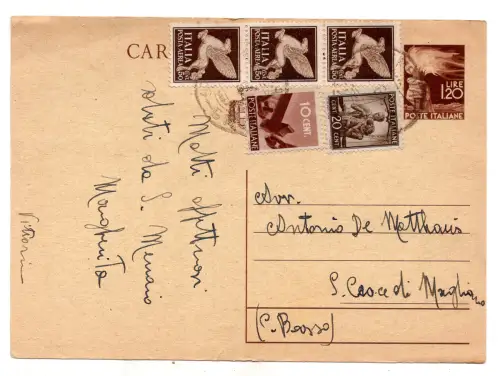 CAR
ITALIA
POSTA AEREA
50
ITALIA
POSTA AEREA
50
ITALIA
POSTA AEREA
50
LIRE
1,20
POSTE ITALIANE
10 CENT.
POSTE ITALIANE
CENT 20 CENT
POSTE ITALIANE
Molti affettuosi
saluti da S. Menaio
Margherita
Avv.
Antonio De Matthaeis
S. Croce di Magliano
(C. Basso)